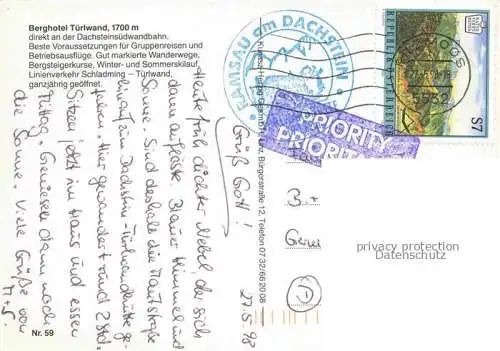 Berghotel Türlwand, 1700 m
direkt an der Dachsteinsüdwandbahn.
Beste Voraussetzungen für Gruppenreisen und
Betriebsausflüge. Gut markierte Wanderwege,
Bergsteigerkurse, Winter- und Sommerskilauf,
Linienverkehr Schladming – Türlwand,
ganzjährig geöffnet.
27.5.98
Grüß Gott!
Heute früh dichter Nebel, der sich
dann auflöste. Blauer Himmel und
Sonne. Sind deshalb die Mautstraße
hinauf zur Dachstein-Türlwandhütte ge-
fahren. Hier gewandert rund 2 Std.
Sitzen jetzt im Haus und essen
Mittag. Genießen dann noch
die Sonne. Viele Grüße von
M+S.
Nr. 59
RAMSAU am DACHSTEIN
Bürgerstraße 12, Telefon 07 32/66 20 08
PRIORITY
PRIORIT
REPUBLIK ÖSTERREICH
S7
B.+
Gerei
D
privacy protection
Datenschutz